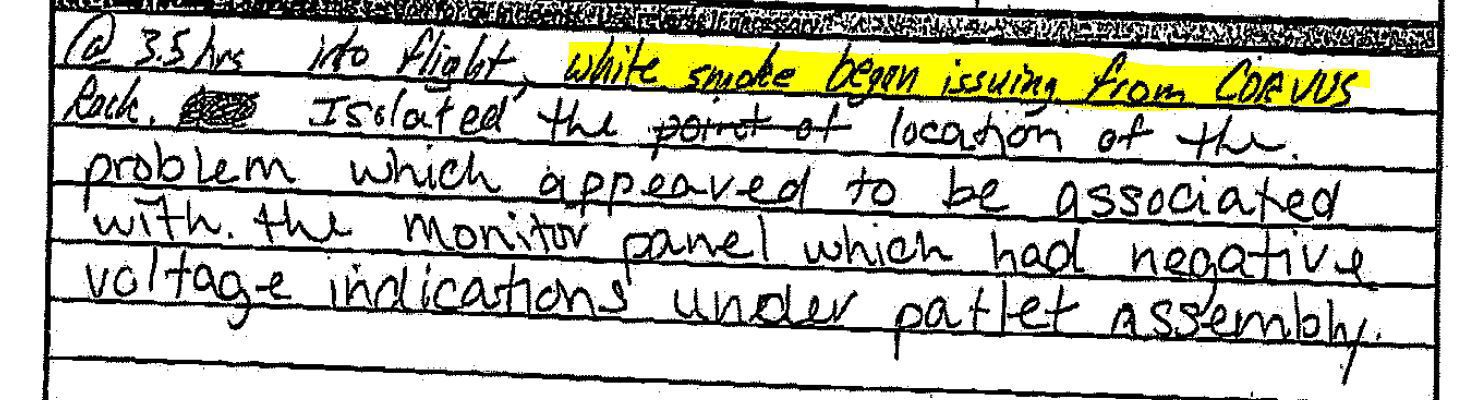 @ 3.5 hrs into flight, white smoke began issuing from CORVUS
Rack. Isolated the point of location of the.
problem which appeared to be associated
with. the monitor panel which had negative
voltage indications under patlet assembly.